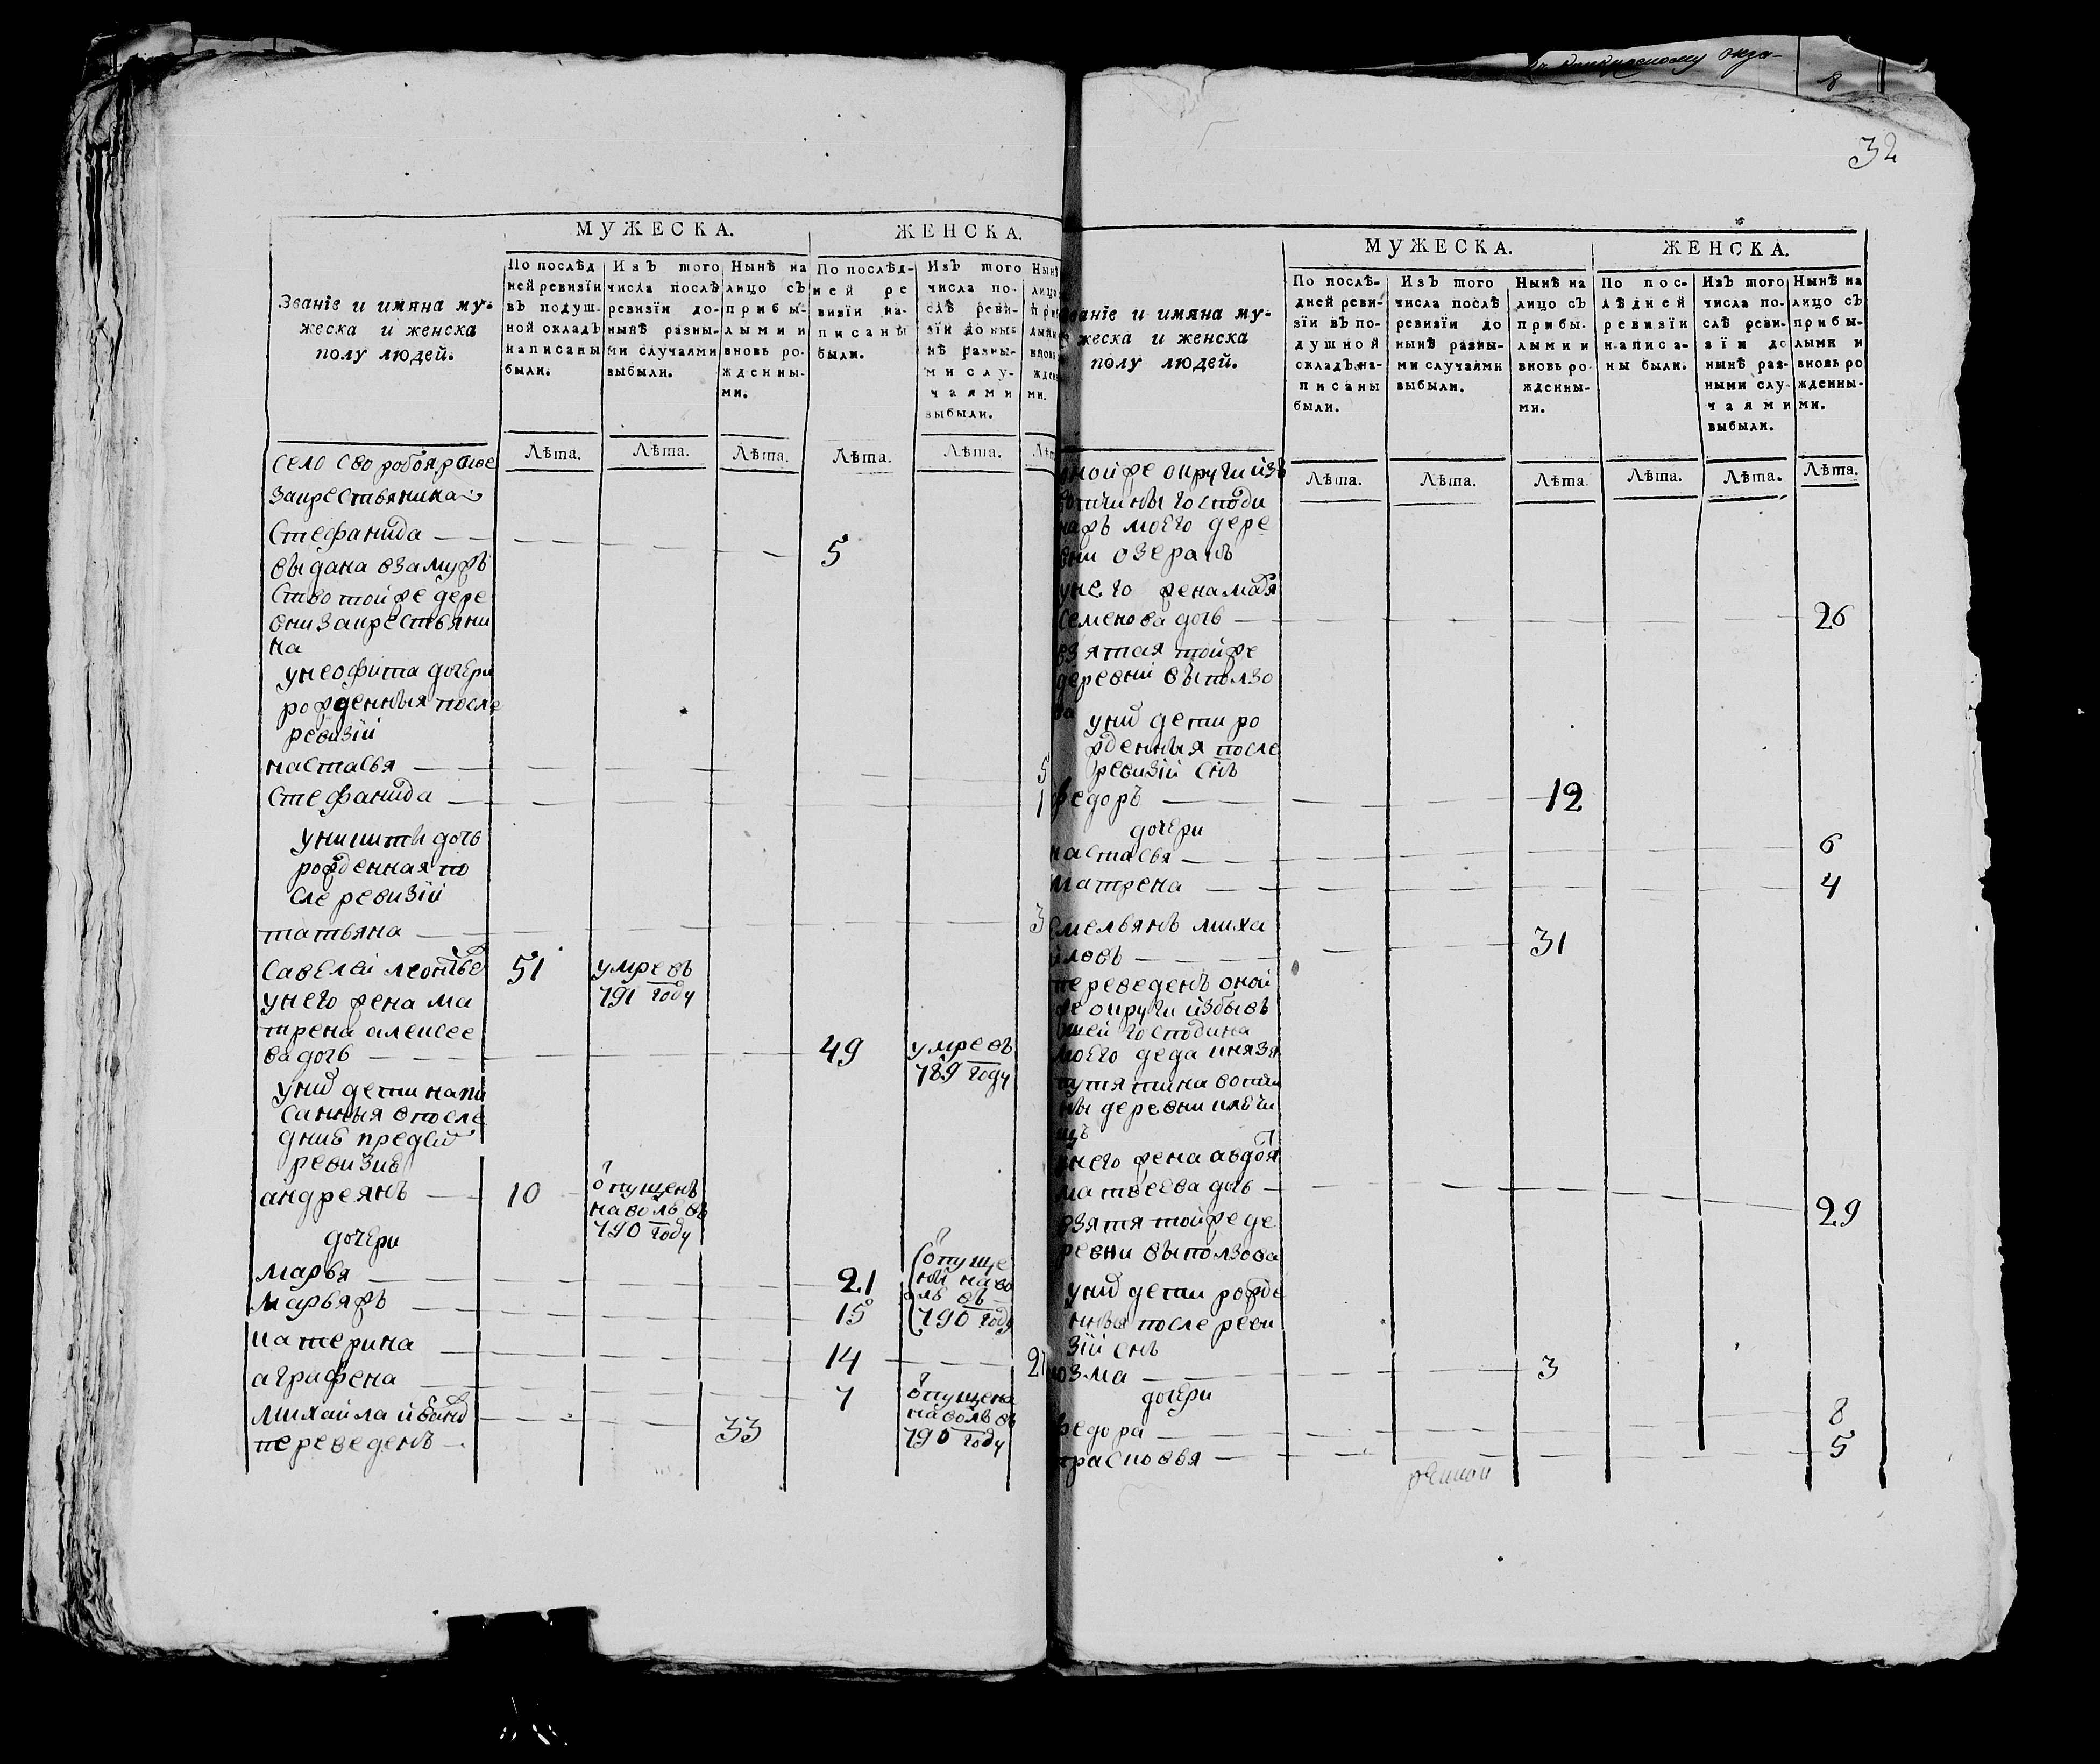 МУЖЕСКА.
ЖЕНСКА.
Званїе и имяна му-
жеска и женска
полу людей.
По послѣд
ней ревизїи
въ подуш-
ной окладъ
написаны
были.
Изъ того
числа послѣ
ревизїи до-
нынѣ разны-
ми случаями
выбыли.
Нынѣ на
лицо съ
прибы-
лыми и
вновь ро-
жденны-
ми.
По послѣд-
ней ре
визїи на-
писаны
были.
Изъ того
числа по-
слѣ реви-
зїи до ны-
нѣ разны-
ми слу-
чаями
выбыли.
Лѣта.
Лѣта.
Лѣта.
Лѣта.
Лѣта.
село
закрестьянина
стефанида
5
выдана взамуж
ство тойже дере
вни закрестьяни
на
унеофита дочери
рожденныя после
ревизїи
настасья 5
стефанида 1
уникиты дочь
рожденная по
сле ревизїи
татьяна 3
савелей леонтьев 51 умре въ
791 году
унего жена ма
трена алексее
ва дочь 49 умре въ
789 году
уних дети напи
санныя в после
дние пред сим
ревизию
андреянъ 10 отпущенъ
наволь въ
790 году
дочери
марья 21
марья ж 15
отпуще
ны наво
ль въ
790 году
катерина 14 27
аграфена 7 отпущена
наволь въ
790 году
михаила иванов 33
переведенъ
32
МУЖЕСКА.
ЖЕНСКА.
Званїе и имяна му-
жеска и женска
полу людей.
По послѣ-
дней реви-
зїи въ по-
душной
окладъ на-
писаны
были.
Изъ того
числа послѣ
ревизїи до
нынѣ разны-
ми случаями
выбыли.
Нынѣ на
лицо съ
прибы-
лыми и
вновь ро-
жденны-
ми.
По пос-
лѣдней
ревизїи
написа-
ны были.
Изъ того
числа по-
слѣ реви-
зїи до
нынѣ раз-
ными слу-
чаями
выбыли.
Нынѣ на
лицо съ
прибы-
лыми и
вновь ро
жденны-
ми.
Лѣта.
Лѣта.
Лѣта.
Лѣта.
Лѣта.
Лѣта.
оной же округи изъ
вотчины господи
на ж моего дере
вни озерак
унего жена мавра
семенова дочь 26
взятая тойже
деревни выползо
ва
уних дети ро
жденныя после
ревизїи снъ
федоръ 12
дочери
настасья 6
матрена 4
емельянъ миха
йловъ 31
переведенъ оной
же округи из быв
шей господина
моего деда князя
путятина вотчи
ны деревни
унего жена авдотя
матвеева дочь 29
взята тойже де
ревни выползова
уних дети рожде
нныя после реви
зїи снъ
козма 3
дочери
федора 8
прасковья 5